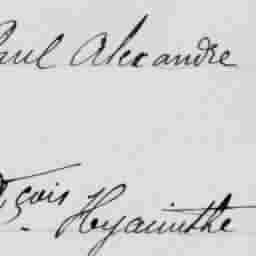 Paul Alexandre
çois
Hyacinthe